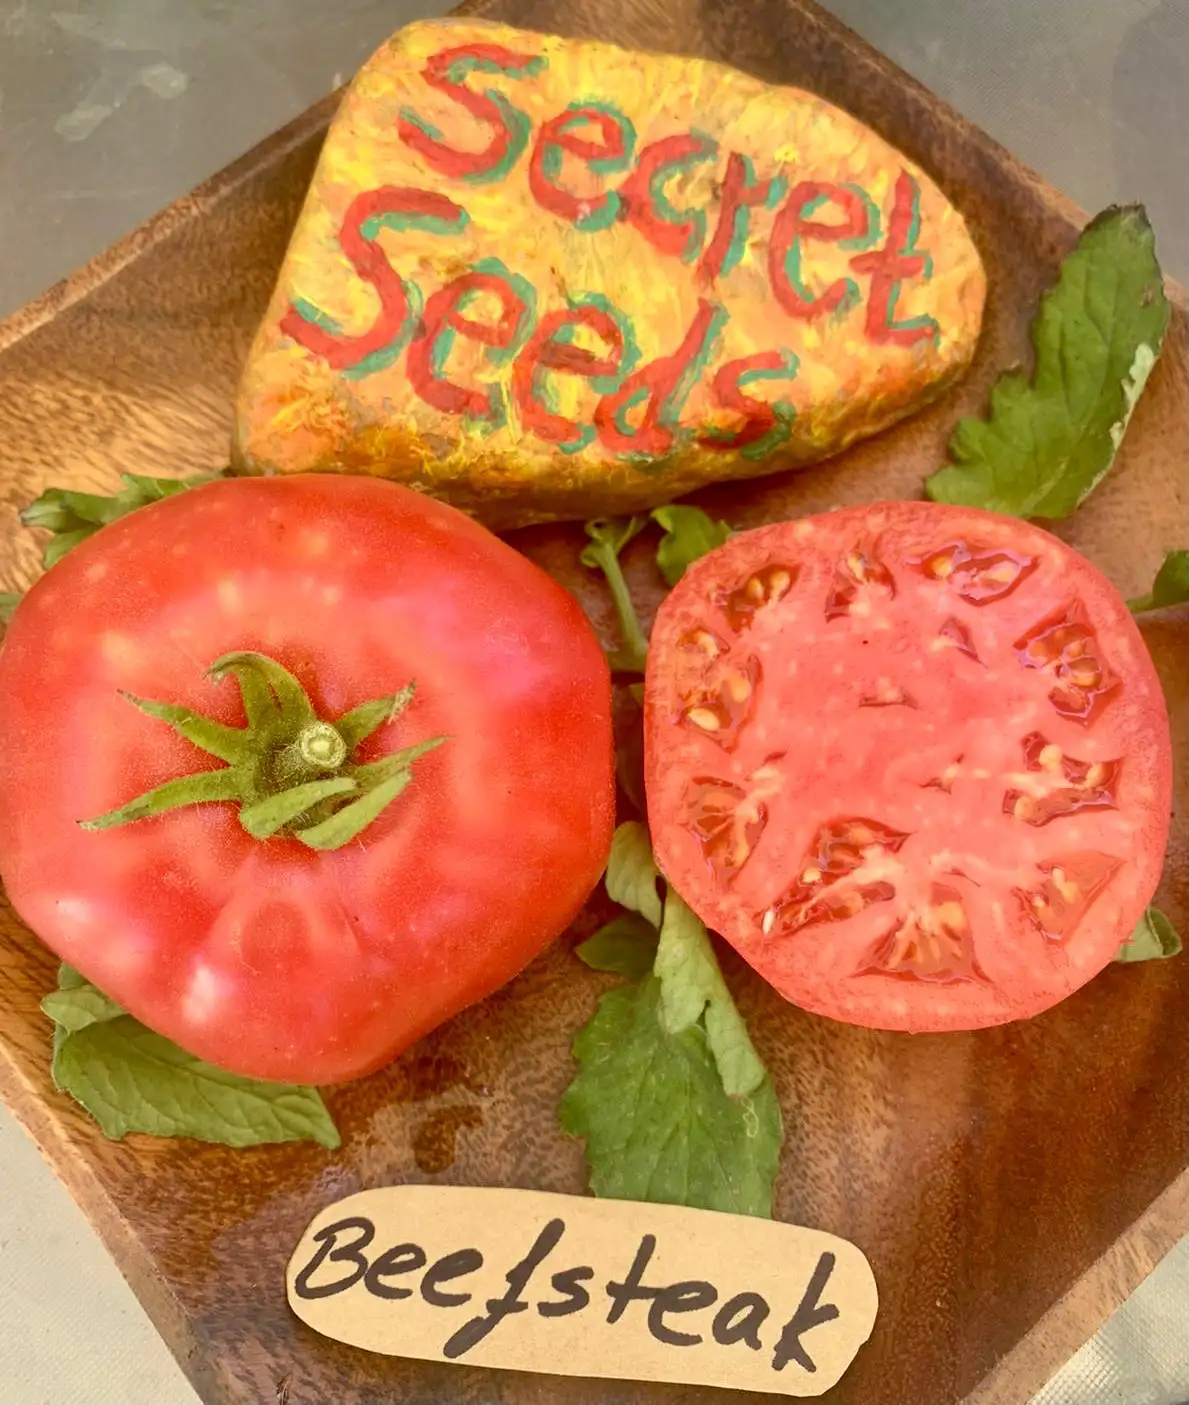 Secret
Seeds
Beefsteak